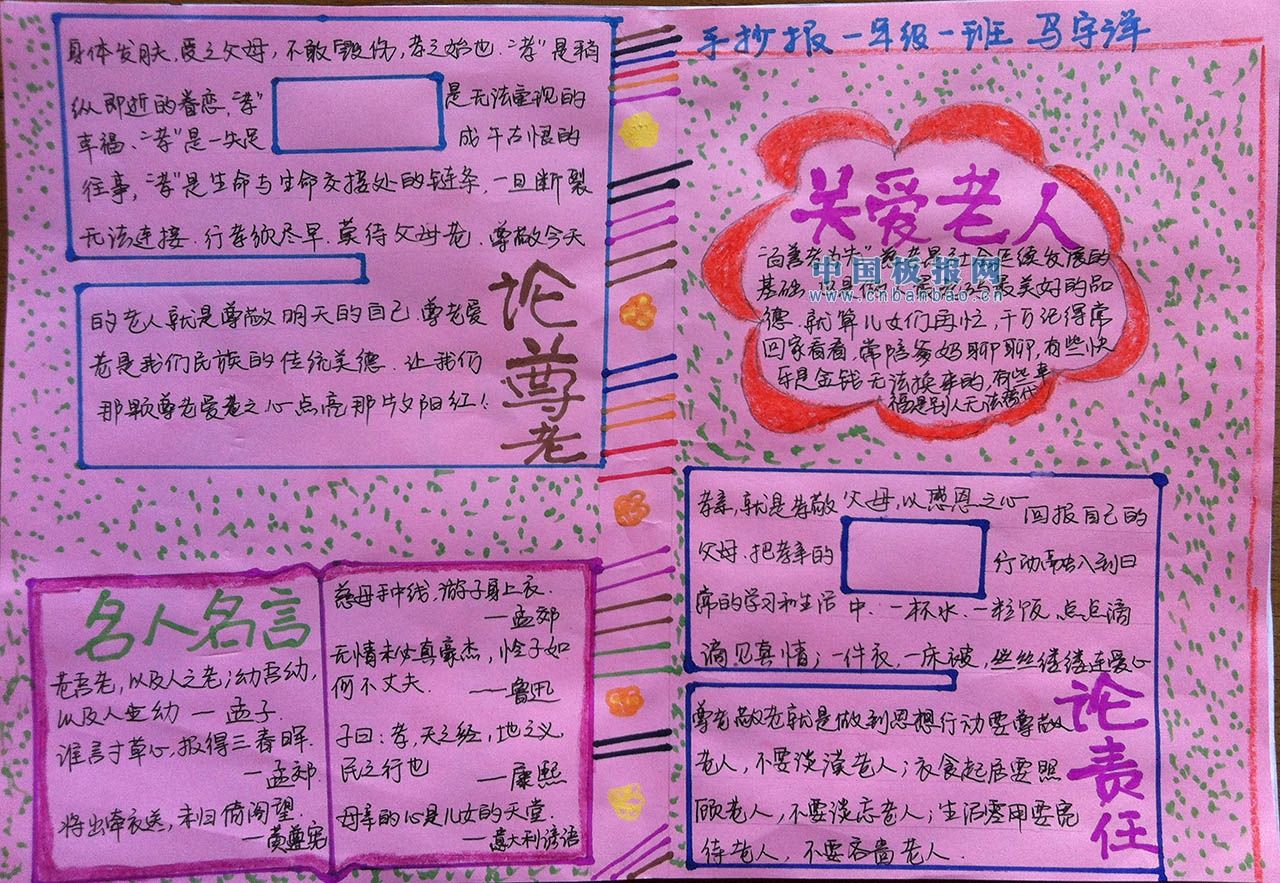 手抄报 一年级一班 马宇洋
身体发肤,受之父母,不敢毁伤,孝之始也.“孝”是稍
纵即逝的眷恋,“孝” 是无法重现的
幸福.“孝”是一失足 成千古恨的
往事,“孝”是生命与生命交接处的链条,一旦断裂
无法连接.行孝须尽早.莫待父母老.尊敬今天
的老人就是尊敬明天的自己.尊老爱
老是我们民族的传统美德.让我们
那颗尊老爱老之心点亮那片夕阳红!
论尊老
名人名言
老吾老,以及人之老;幼吾幼,
以及人之幼 — 孟子.
谁言寸草心,报得三春晖.
—孟郊.
将出牵衣送,未归倚阁望.
—黄尊宪
慈母手中线,游子身上衣.
—孟郊
无情未必真豪杰,怜子如
何不丈夫. ——鲁迅
子曰:孝,天之经,地之义
民之行也 —康熙
母亲的心是儿女的天堂.
—意大利谚语
关爱老人
“百善孝为先” 社会延续发展的
基础 最美好的品
德.就算儿女们再忙,千万记得常
回家看看.常陪爹妈聊聊,有些快
乐是金钱无法换来的,有些幸
福是别人无法替代
中国板报网
www.cnbanbao.cn
孝亲,就是孝敬父母,以感恩之心回报自己的
父母.把孝亲的 行动 到日
常的学习和生活中.一杯水.一粒饭.点点滴
滴见真情;一件衣,一床被,丝丝缕缕连爱心
论责任
尊老敬老就是做到思想行动要尊敬
老人,不要谈漠老人;衣食起居要照
顾老人,不要谈忘老人;生活零用要宽
待老人,不要吝啬老人.